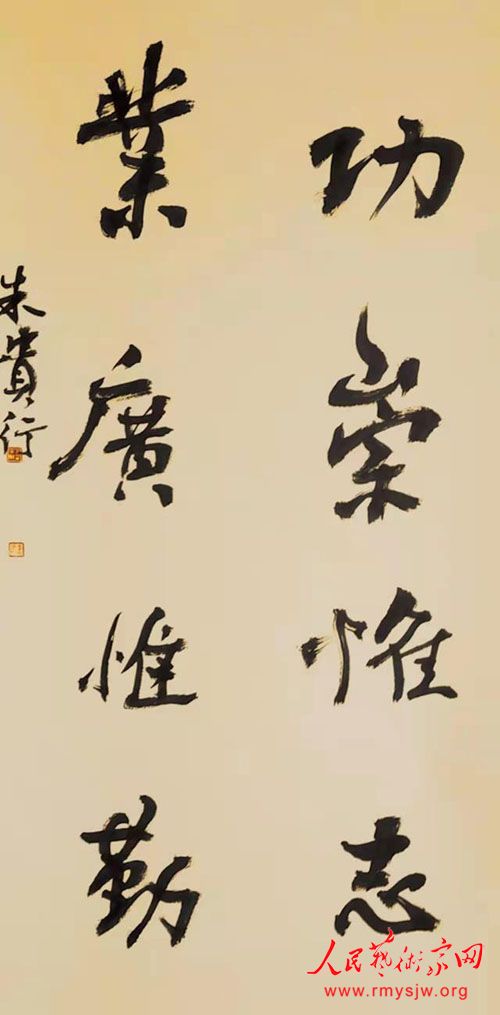 功崇惟志
業廣惟勤
朱貴行
人民藝術家网
www.rmysjw.org